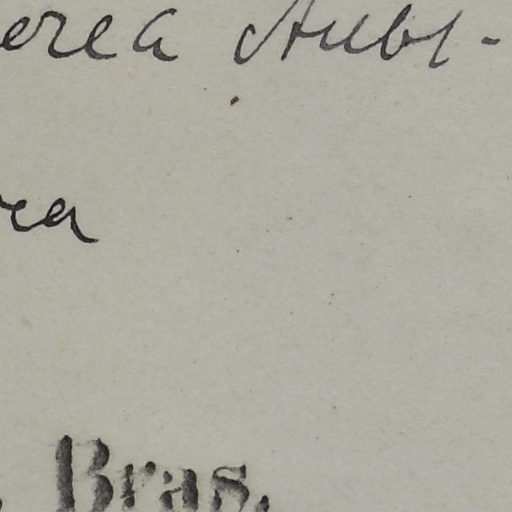 erea Aubl-
ra
. Bras.